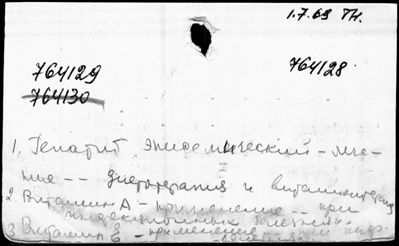 1.7.69 ТН.
764129 764128
764130
1. Гепатит эпидемический - лече-
ние -- диетотерапия и витаминотерапия
2. Витамин А - применение -- при
инфекционных болезнях
3. Витамин Е - применение -- при инф.